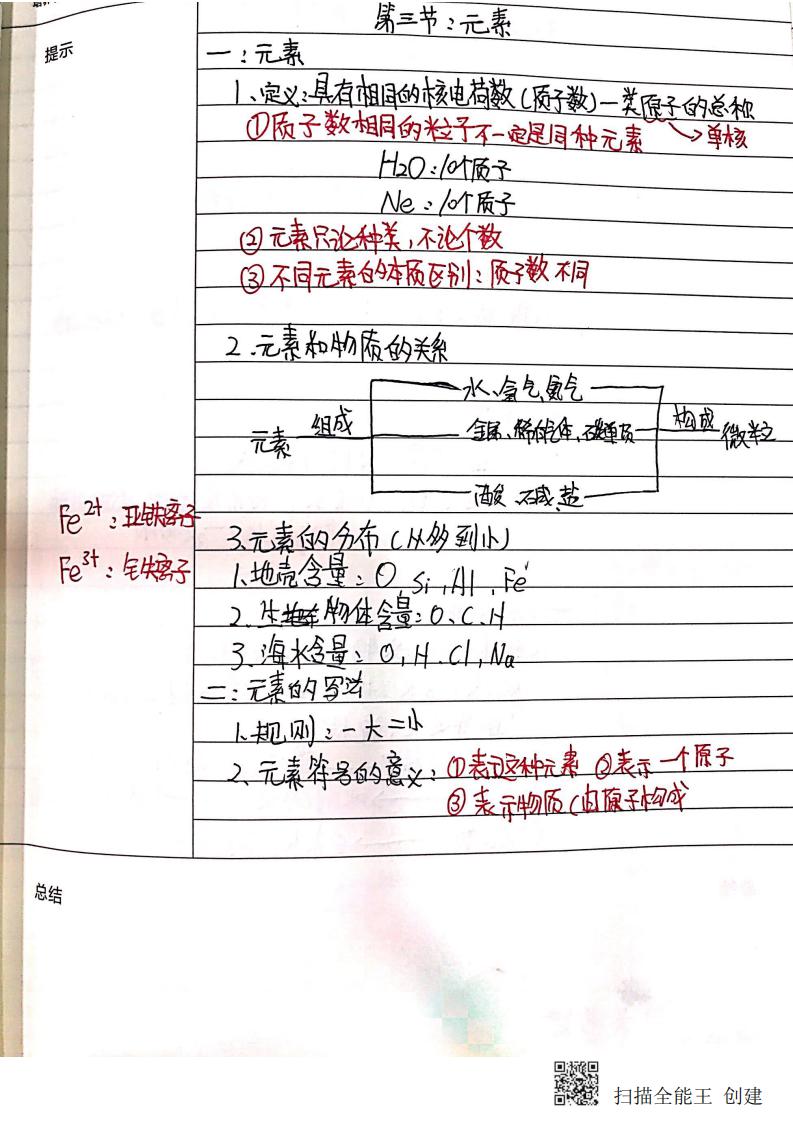 第三节：元素
提示
一：元素
1、定义：具有相同的核电荷数(质子数)一类原子的总称
①质子数相同的粒子不一定是同种元素 → 单核
H2O：10个质子
Ne：10个质子
②元素只论种类，不论个数
③不同元素的本质区别：质子数不同
2.元素和物质的关系
水、氢气、氨气
元素 组成 金属、稀有气体、碳单质 构成 微粒
酸、碱、盐
Fe2+：亚铁离子
Fe3+：铁离子
3.元素的分布(从多到小)
1.地壳含量：O,Si,Al,Fe
2.生物体含量：O、C、H
3.海水含量：O,H.Cl,Na
二：元素的写法
1、规则：一大二小
2、元素符号的意义：①表示这种元素 ②表示一个原子
③表示物质(由原子构成
总结
扫描全能王 创建